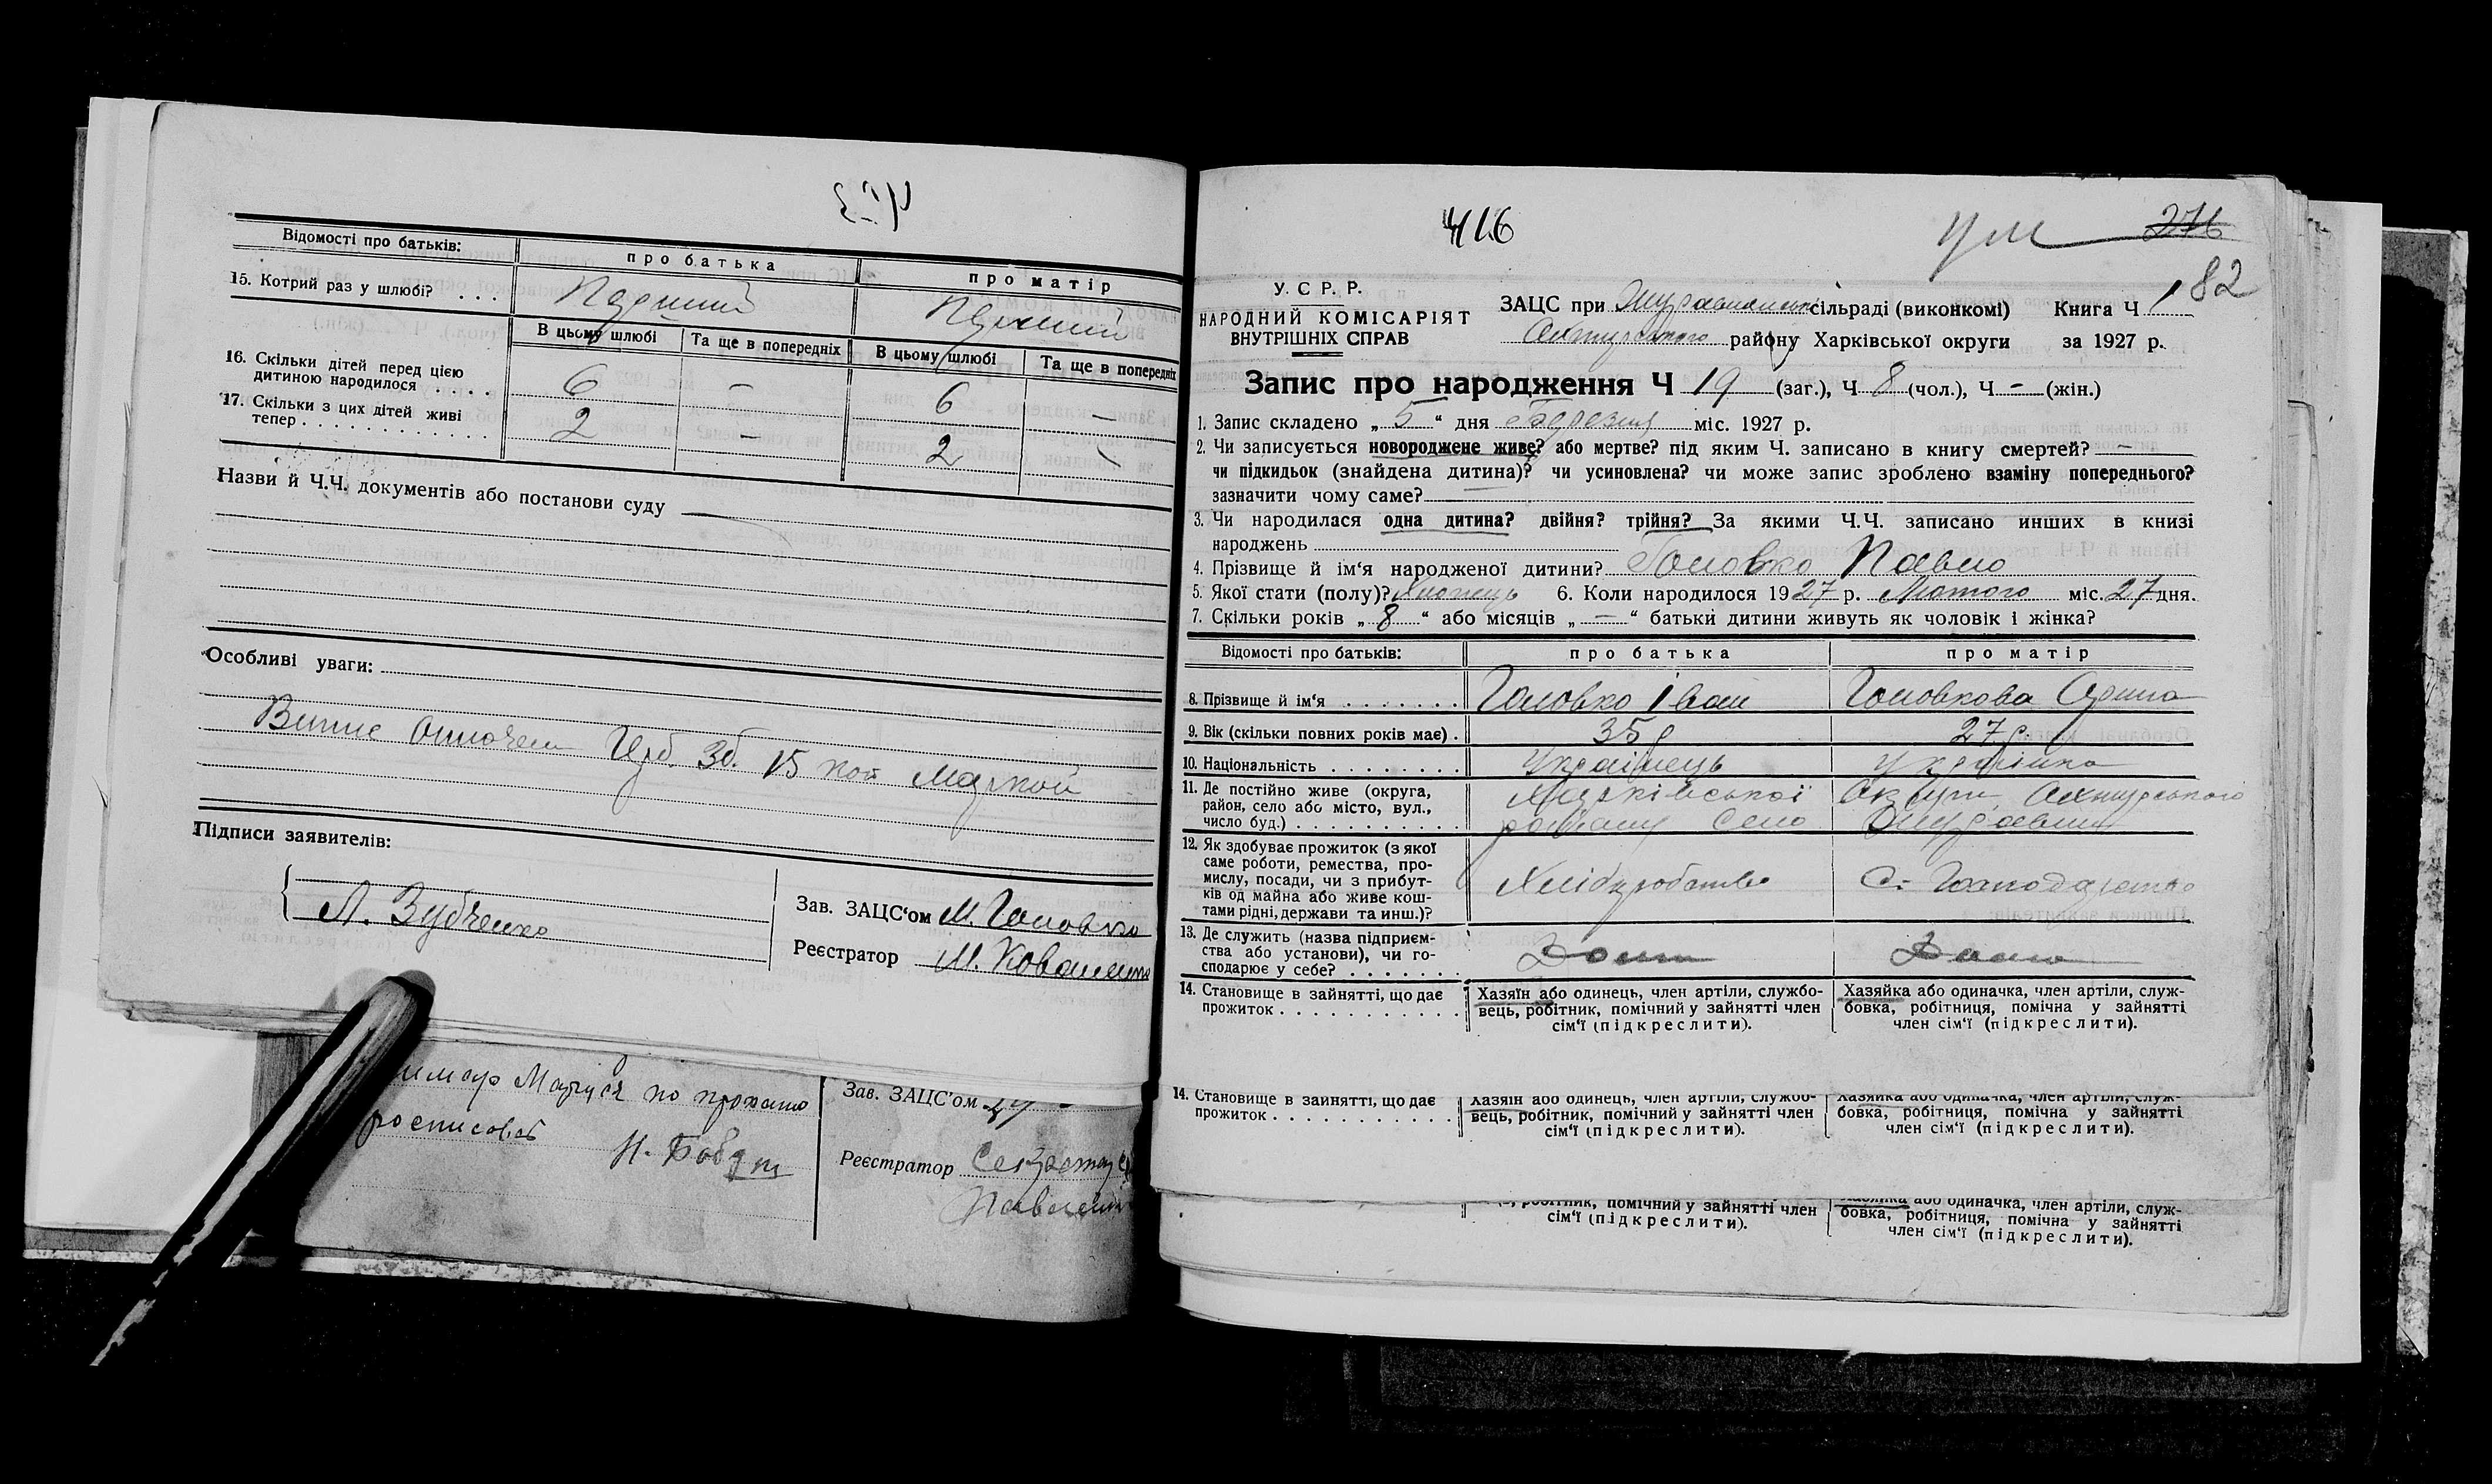 Відомості про батьків: про батька про матір
15. Котрий раз у шлюбі? . . . Перший Перший
В цьому шлюбі Та ще в попередніх В цьому шлюбі Та ще в попередніх
16. Скільки дітей перед цією
дитиною народилося . . . . 6 – 6 –
17. Скільки з цих дітей живі
тепер . . . . . . . . . . . . 2 – 2 –
Назви й Ч.Ч. документів або постанови суду
Особливі уваги:
Герб. Зб. 15 коп маркой
Підписи заявителів:
Л. Зубченко
Зав. ЗАЦС'ом М. Головко
Реєстратор М. Коваленко
по прохання
росписовсь
Зав. ЗАЦС'ом
Реєстратор Секретар
416
ум 276
82
У. С Р. Р.
НАРОДНИЙ КОМІСАРІЯТ
ВНУТРІШНІХ СПРАВ
ЗАЦС при сільраді (виконкомі) Книга Ч 1
Охтирського району Харківської округи за 1927 р.
Запис про народження Ч 19 (заг.), Ч 8 (чол.), Ч – (жін.)
1. Запис складено „ 5 “ дня Березня міс. 1927 р.
2. Чи записується новороджене живе? або мертве? під яким Ч. записано в книгу смертей? –
чи підкидьок (знайдена дитина)? чи усиновлена? чи може запис зроблено взаміну попереднього?
зазначити чому саме? –
3. Чи народилася одна дитина? двійня? трійня? За якими Ч.Ч. записано инших в книзі
народжень
4. Прізвище й ім'я народженої дитини? Головко Павло
5. Якої стати (полу)? Хлопець 6. Коли народилося 1927 р. Лютого міс. 27 дня.
7. Скільки років „ 8 “ або місяців „ – “ батьки дитини живуть як чоловік і жінка?
Відомості про батьків: про батька про матір
8. Прізвище й ім'я . . . . . . . Головко Іван Головкова Орина
9. Вік (скільки повних років має) . 35 р 27 р.
10. Національність . . . . . . . . Українець Українка
11. Де постійно живе (округа,
район, село або місто, вул.,
число буд.) . . . . . . . . . . Харківської Округи, Охтирського
району Село
12. Як здобуває прожиток (з якої
саме роботи, ремества, про-
мислу, посади, чи з прибут-
ків од майна або живе кош-
тами рідні, держави та инш.)? Хліборобство С. Господарство
13. Де служить (назва підприєм-
ства або установи), чи го-
сподарює у себе? . . . . . . .
14. Становище в зайнятті, що дає
прожиток . . . . . . . . . . .
Хазяїн або одинець, член артіли, службо-
вець, робітник, помічний у зайнятті член
сім'ї (підкреслити).
Хазяйка або одиначка, член артіли, служ-
бовка, робітниця, помічна у зайнятті
член сім'ї (підкреслити).
14. Становище в зайнятті, що дає
прожиток . . . . . . . . . . .
Хазяїн або одинець, член артіли, службо-
вець, робітник, помічний у зайнятті член
сім'ї (підкреслити).
Хазяйка або одиначка, член артіли, служ-
бовка, робітниця, помічна у зайнятті
член сім'ї (підкреслити).
робітник, помічний у зайнятті член
сім'ї (підкреслити).
Хазяйка або одиначка, член артіли, служ-
бовка, робітниця, помічна у зайнятті
член сім'ї (підкреслити).